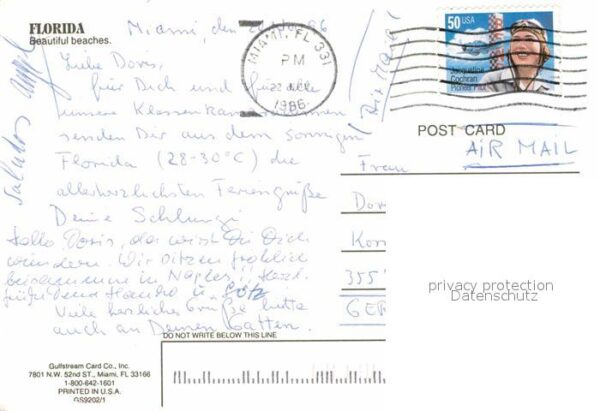 FLORIDA
Beautiful beaches.
Miami den
Liebe Doris,
für Dich und für alle
unsere
senden Dir aus dem sonnigen
Florida (28-30°C) die
allerherzlichsten Feriengrüße
Deine Schlungi
Hallo Doris, da wirst Du Dich
wundern. Wir sitzen fröhlich
beisammen in Naples,
Viele herzliche Grüße bitte
auch an Deinen Gatten.
DO NOT WRITE BELOW THIS LINE
Gulfstream Card Co., Inc.
7801 N.W. 52nd ST., Miami, FL 33166
1-800-642-1601
PRINTED IN U.S.A.
GS9202/1
MIAMI, FL 331
PM
1986
50 USA
Jacqueline
Cochran
Pioneer Pilot
POST CARD
AIR MAIL
Frau
Dor
355
GER
privacy protection
Datenschutz